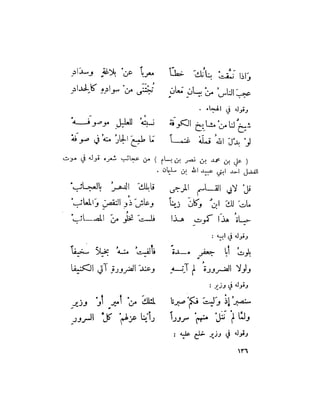 وَاذا نَمَّقتْ بنانُكَ خطّاً معرباً عنْ بلاغةٍ وسدَادِ
عجبَ الناسُ منْ بيـانِ معانٍ تُجْتَنَى منْ سوادِهِ كالحدادِ
وقوله في الهجاء .
شيخٌ لنا منْ مشايخِ الكوفهْ نسبتُهُ للعليلِ موصوفـــهْ
لوْ بدّلَ اللهُ قملَهُ غنمـــاً مَا طمِعَ الجارُ منهُ في صوفهْ
( علي بن محمد بن نصر بن بسام ) من عجائب شعره قوله في موت
الفضل احد ابني عبيد الله بن سليمان .
قلْ لابي القـاسمِ المرجى قابلكَ الدهـرُ بالعجـائبْ
ماتَ لكَ ابنٌ وكَانَ زيناً وعاشَ ذُو النقصِ والمعائبْ
حيـاةُ هذا كموتِ هـذا فلستَ تخلُو منَ المصـائبْ
وقوله في ابيه :
بلوتُ أبا جعفرٍ مـدةً فألفيتُ منـهُ بخيلاً سخيفاً
ولولا الضـرورةُ لم آتـهِ وعندَ الضرورةِ آتي الكنيفا
وقوله في وزير :
سنصبرُ إذْ وَليتَ فكمْ صبرنا لمثلكَ منْ أميرٍ أوْ وزيرِ
ولمَّا لمْ نَنَلْ منهمْ سروراً رأينا عزلهمْ كلَّ السرورِ
وقوله في وزير خلع عليه :
١٣٦